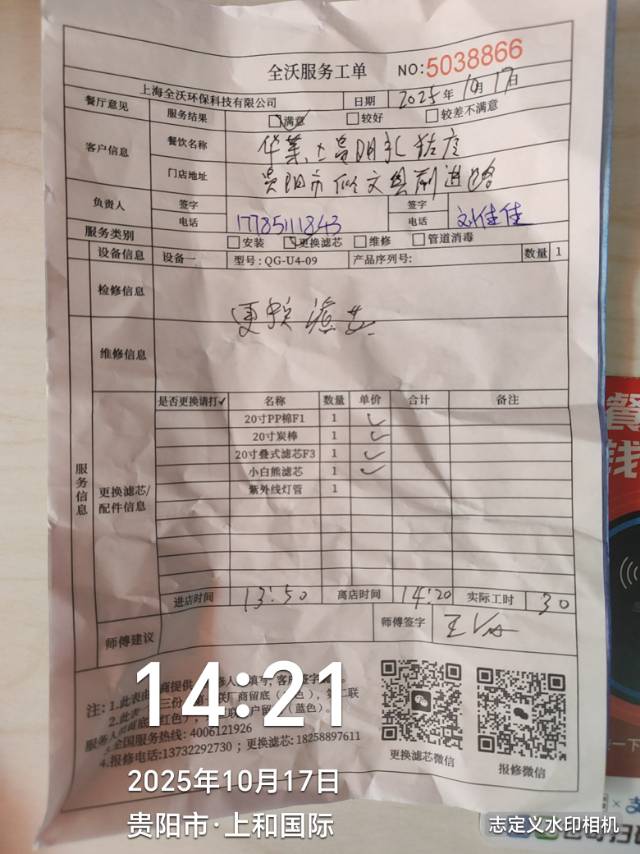 全沃服务工单 NO:5038866
上海全沃环保科技有限公司 日期 2025年10月17日
餐厅意见 服务结果 满意 较好 较差不满意
客户信息 餐饮名称
门店地址 贵阳市
负责人 签字 签字
电话 17785111843 电话 刘佳佳
服务类别 安装 更换滤芯 维修 管道消毒
设备信息 设备一 型号:QG-U4-09 产品序列号: 数量 1
检修信息
更换滤芯
维修信息
是否更换请打✓ 名称 数量 单价 合计 备注
20寸PP棉F1 1 ✓
20寸炭棒 1 ✓
20寸叠式滤芯F3 1 ✓
小白熊滤芯 1 ✓
紫外线灯管 1
服务信息
更换滤芯/
配件信息
进店时间 13:50 离店时间 14:20 实际工时 30
师傅建议 师傅签字
注:1.此表由
服务人
3.全国服务热线:4006121926
4.报修电话:13732292730;更换滤芯:18258897611
更换滤芯微信 报修微信
14:21
2025年10月17日
贵阳市·上和国际
志定义水印相机
餐
钱